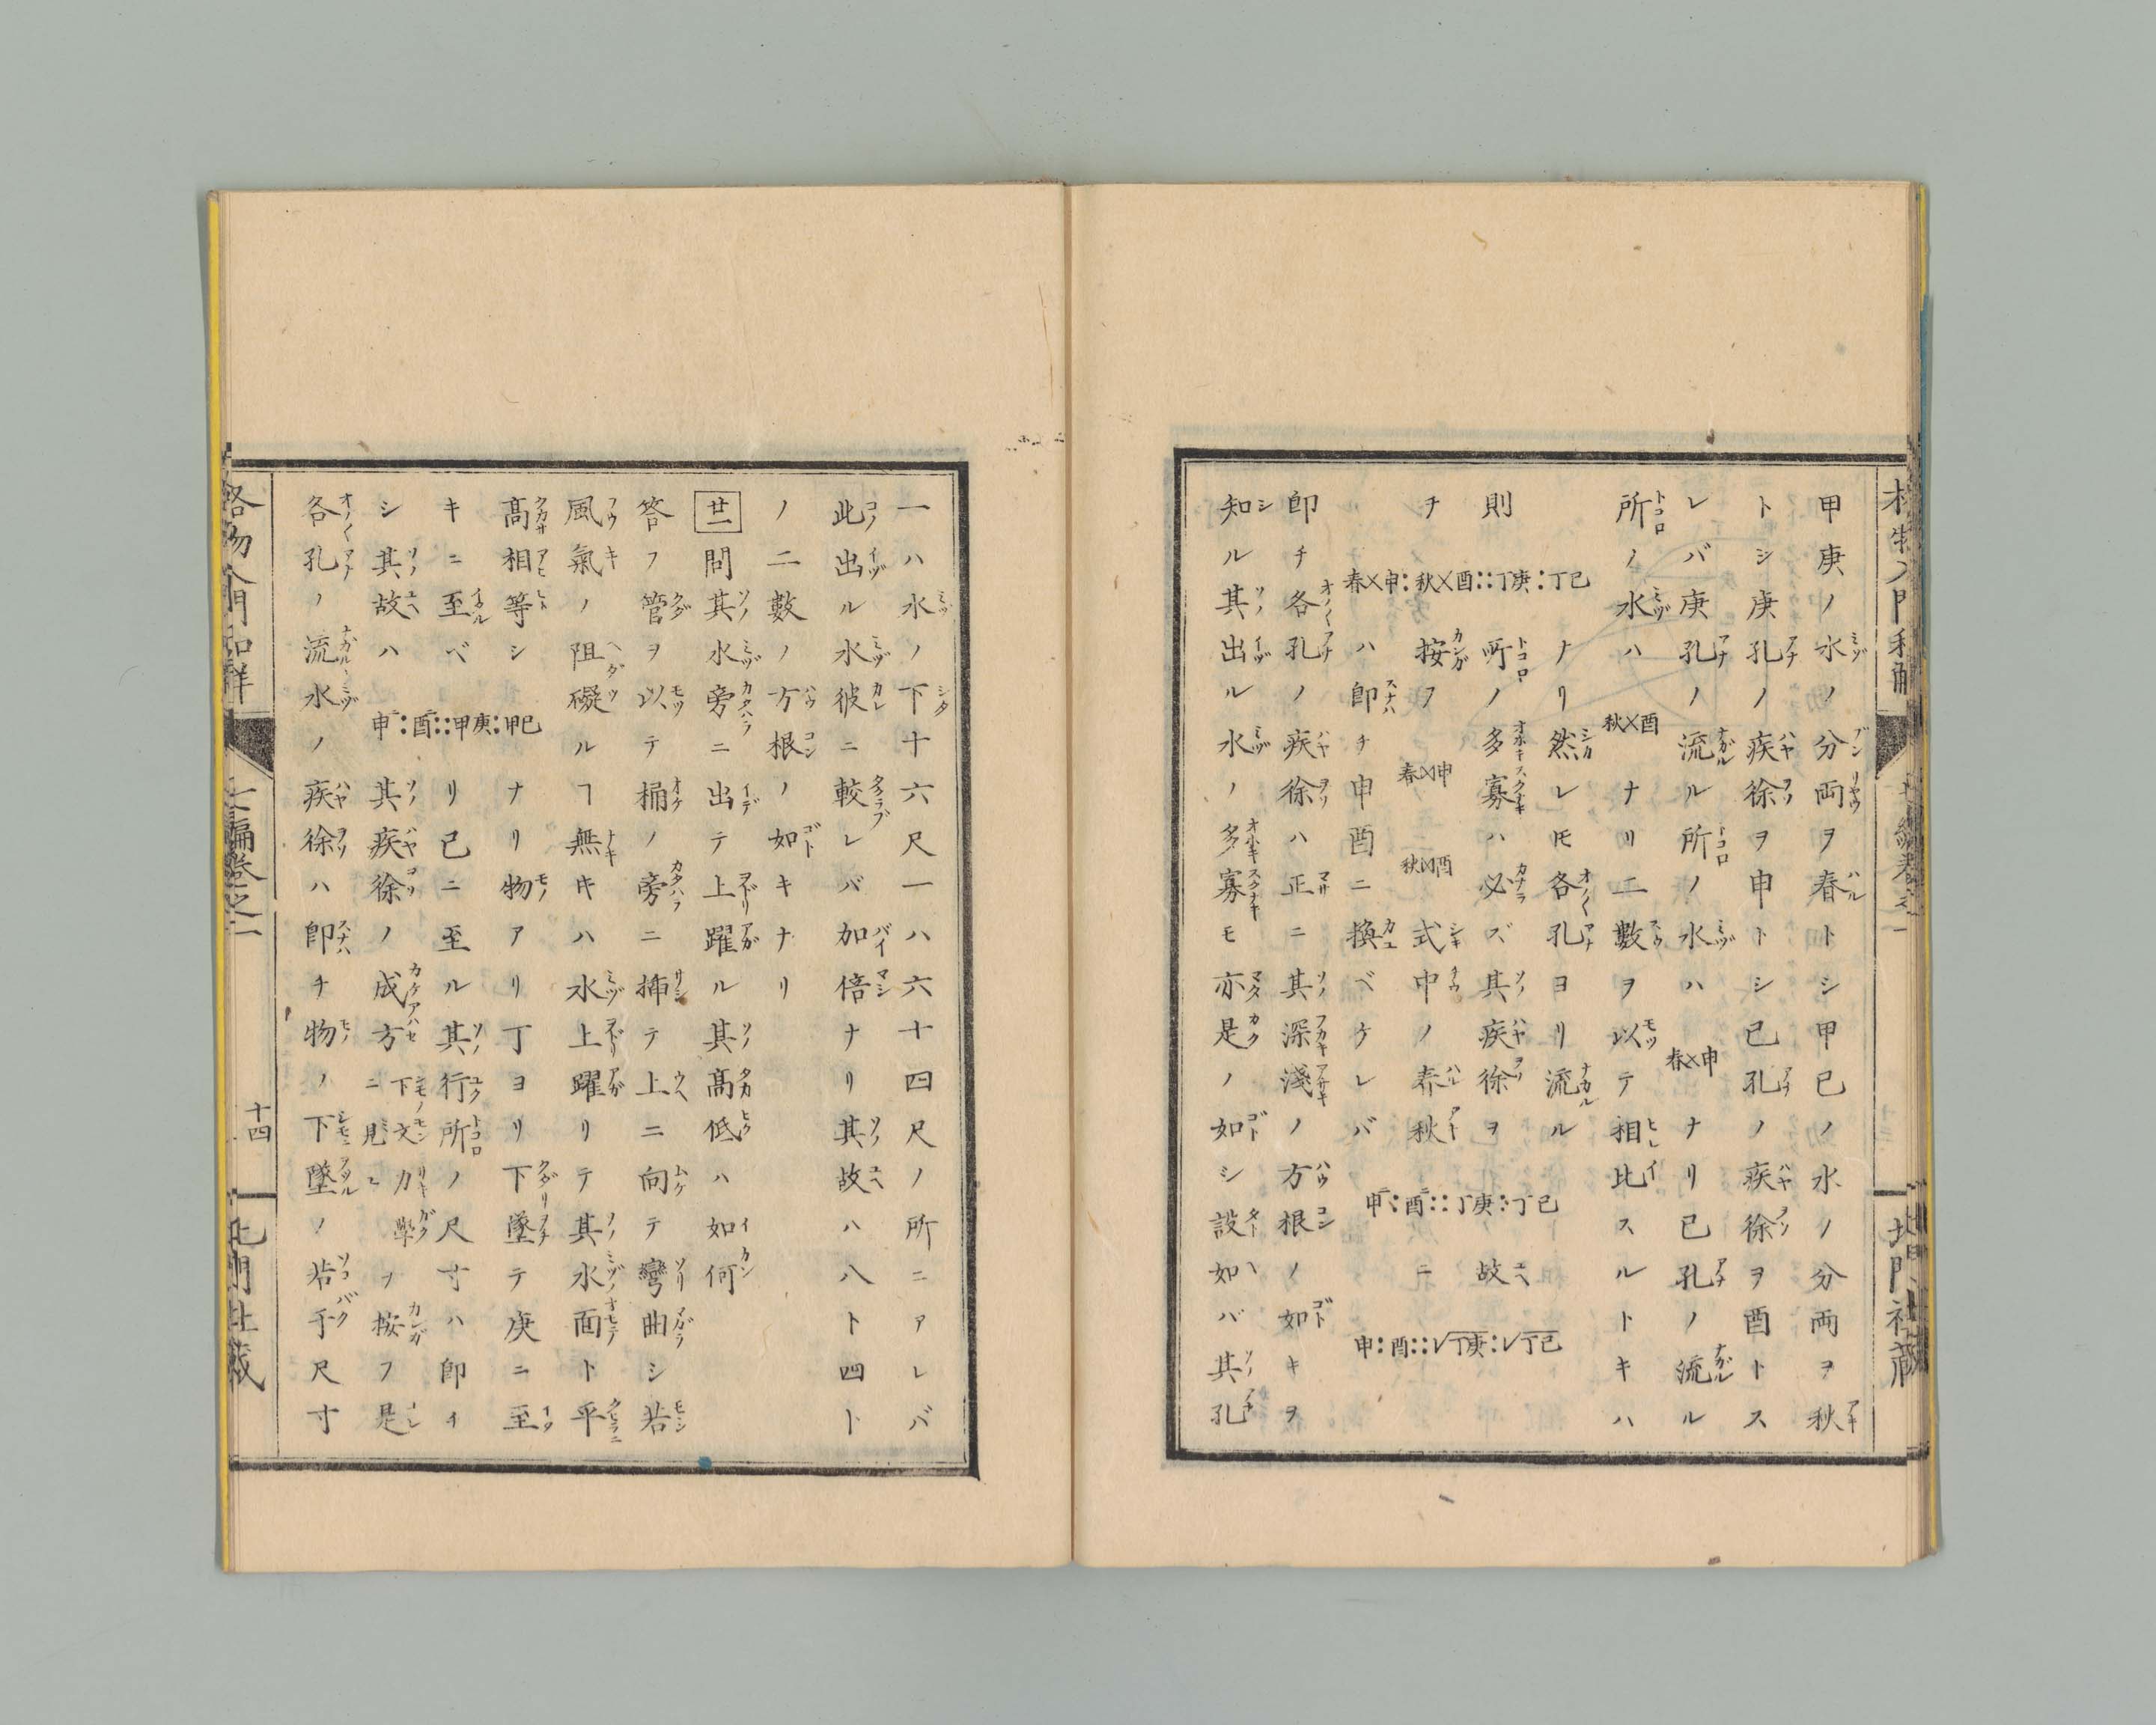 甲庚ノ水ノ分両ヲ春トシ甲己ノ水ノ分両ヲ秋
トシ庚孔ノ疾徐ヲ申トシ己孔ノ疾徐ヲ酉トス
レバ庚孔ノ流ル所ノ水ハ春×申ナリ己孔ノ流ル
所ノ水ハ秋×酉ナリ二數ヲ以テ相比スルトキハ
春×申:秋×酉::丁庚:丁己ナリ然レ𪜈各孔ヨリ流ル
則所ノ多寡ハ必ズ其疾徐ヲ故
チ按フ春×申秋×酉式中ノ春秋ニ
ハ即チ申酉ニ換ベケレバ申二:酉二::丁庚:丁己申:酉::√丁庚:√丁己
即チ各孔ノ疾徐ハ正ニ其深淺ノ方根ノ如キヲ
知ル其出ル水ノ多寡モ亦是ノ如シ設如バ其孔
一ハ水ノ下十六尺一ハ六十四尺ノ所ニアレバ
此出ル水彼ニ較レバ加倍ナリ其故ハ八ト四ト
ノ二數ノ方根ノ如キナリ
廿一 問其水旁ニ出テ上躍ル其高低ハ如何
答フ管ヲ以テ桶ノ旁ニ揷テ上ニ向テ彎曲シ若
風氣ノ阻礙ルヿ無キハ水上躍リテ其水面ト平
高相等シ申二:酉二::甲庚:甲己ナリ物アリ丁ヨリ下墜テ庚ニ至
キニ至ベリ已ニ至ル其行所ノ尺寸ハ即イ
シ其故ハ其疾徐ノ成方下文ニ見ユ力學ヲ按フ是
各孔ノ流水ノ疾徐ハ即チ物ノ下墜ノ若干尺寸
格物入門和解
七編卷之一
十四
北門社藏